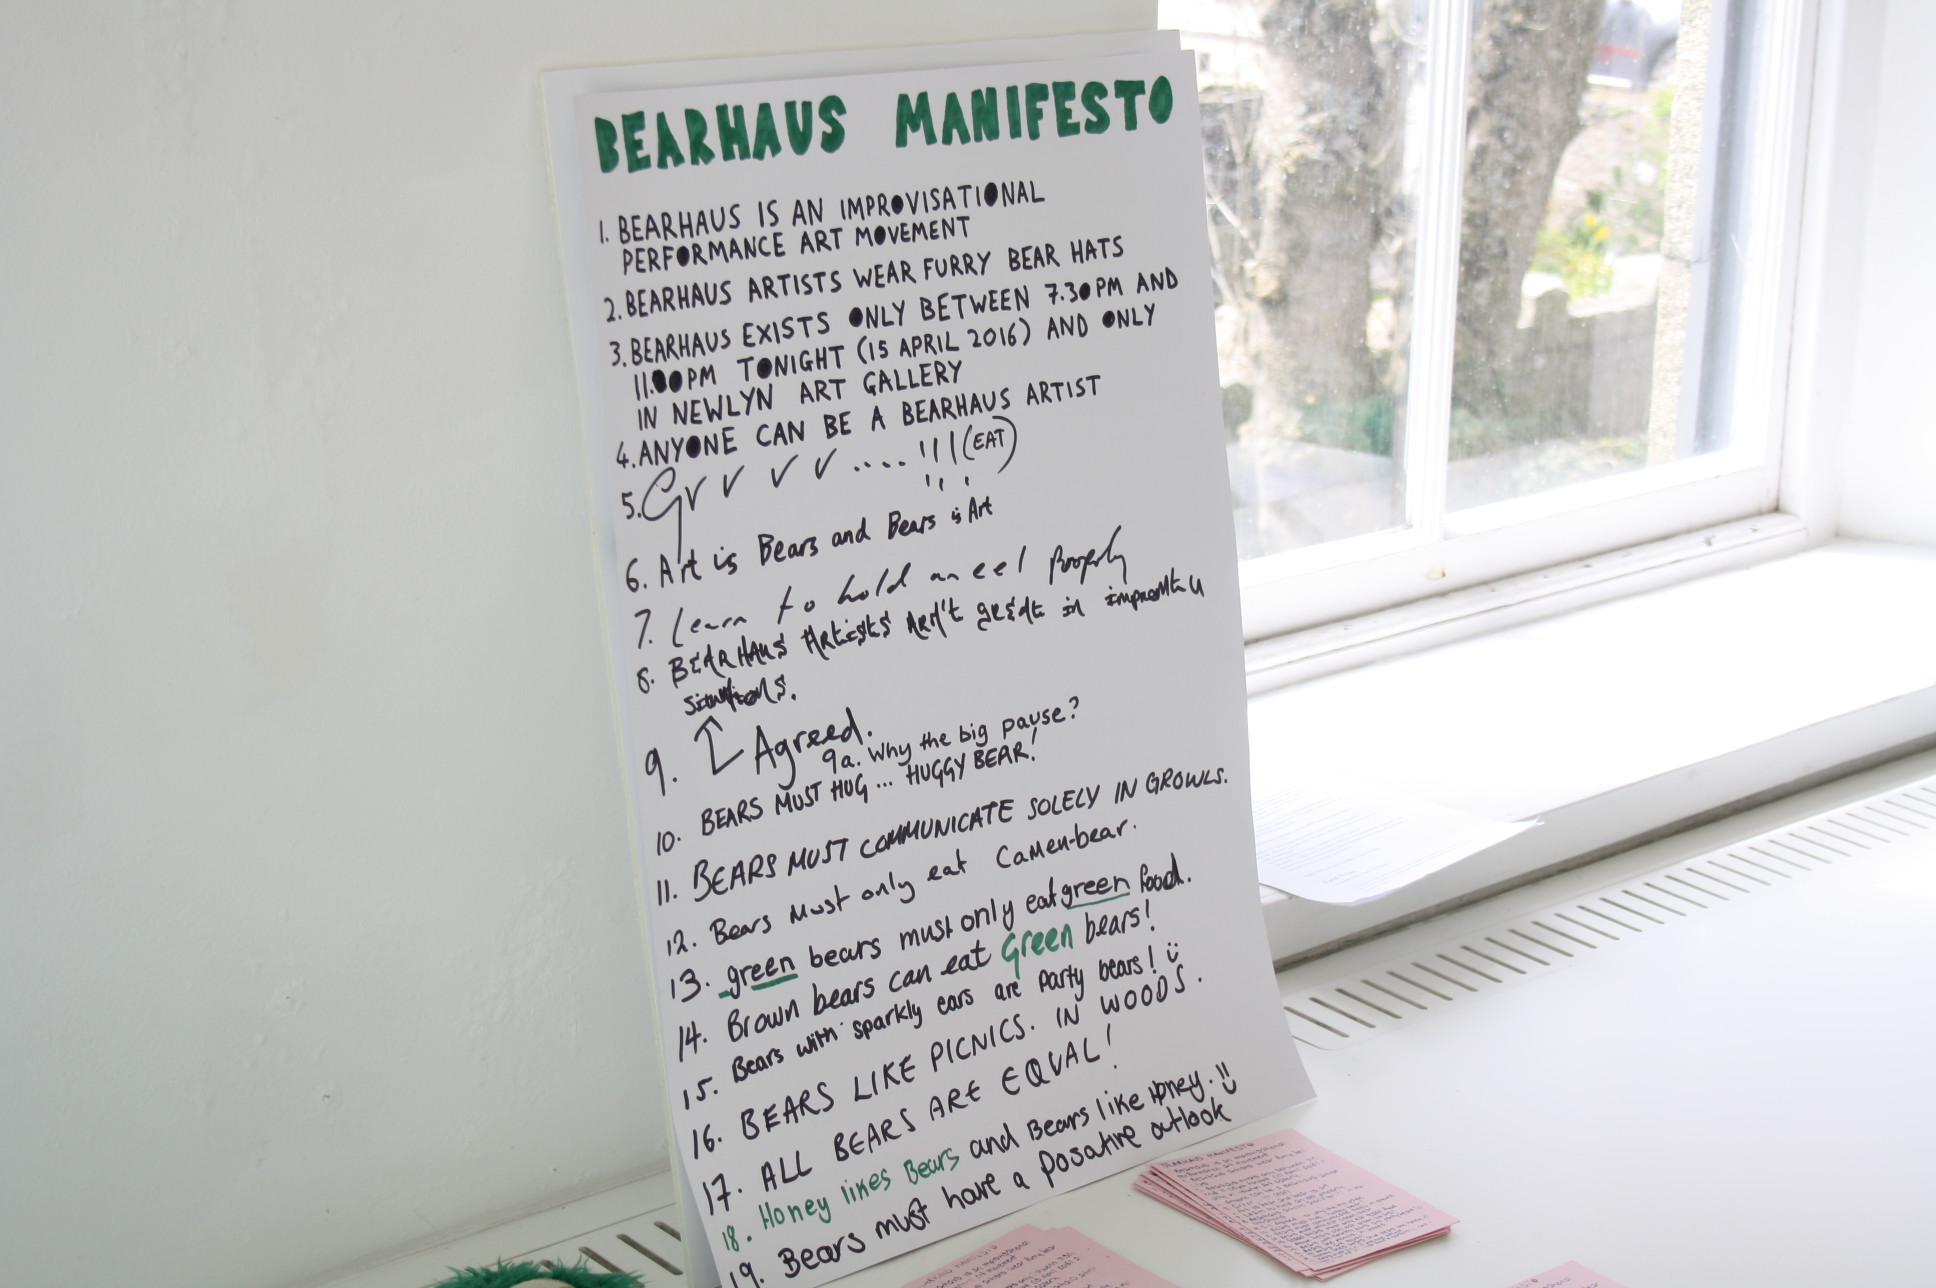 BEARHAUS MANIFESTO
1. BEARHAUS IS AN IMPROVISATIONAL
PERFORMANCE ART MOVEMENT
2. BEARHAUS ARTISTS WEAR FURRY BEAR HATS
3. BEARHAUS EXISTS ONLY BETWEEN 7.30PM AND
11.00PM TONIGHT (15 APRIL 2016) AND ONLY
IN NEWLYN ART GALLERY
4. ANYONE CAN BE A BEARHAUS ARTIST
5. Grrrr....!!!(EAT)
6. Art is Bears and Bears is Art
7. Learn to hold an eel properly
8. BEARHAUS ARtists ARn't great in impromtu
situations.
9. Agreed.
9a. Why the big pause?
10. BEARS MUST HUG... HUGGY BEAR!
11. BEARS MUST COMMUNICATE SOLELY IN GROWLS.
12. Bears Must only eat Camen-bear.
13. green bears must only eat green food.
14. Brown bears can eat Green bears!
15. Bears with sparkly ears are party bears!
16. BEARS LIKE PICNICS. IN WOODS.
17. ALL BEARS ARE EQUAL!
18. Honey likes Bears and Bears like Honey.
19. Bears must have a Posative outlook
BEARHAUS MANIFESTO